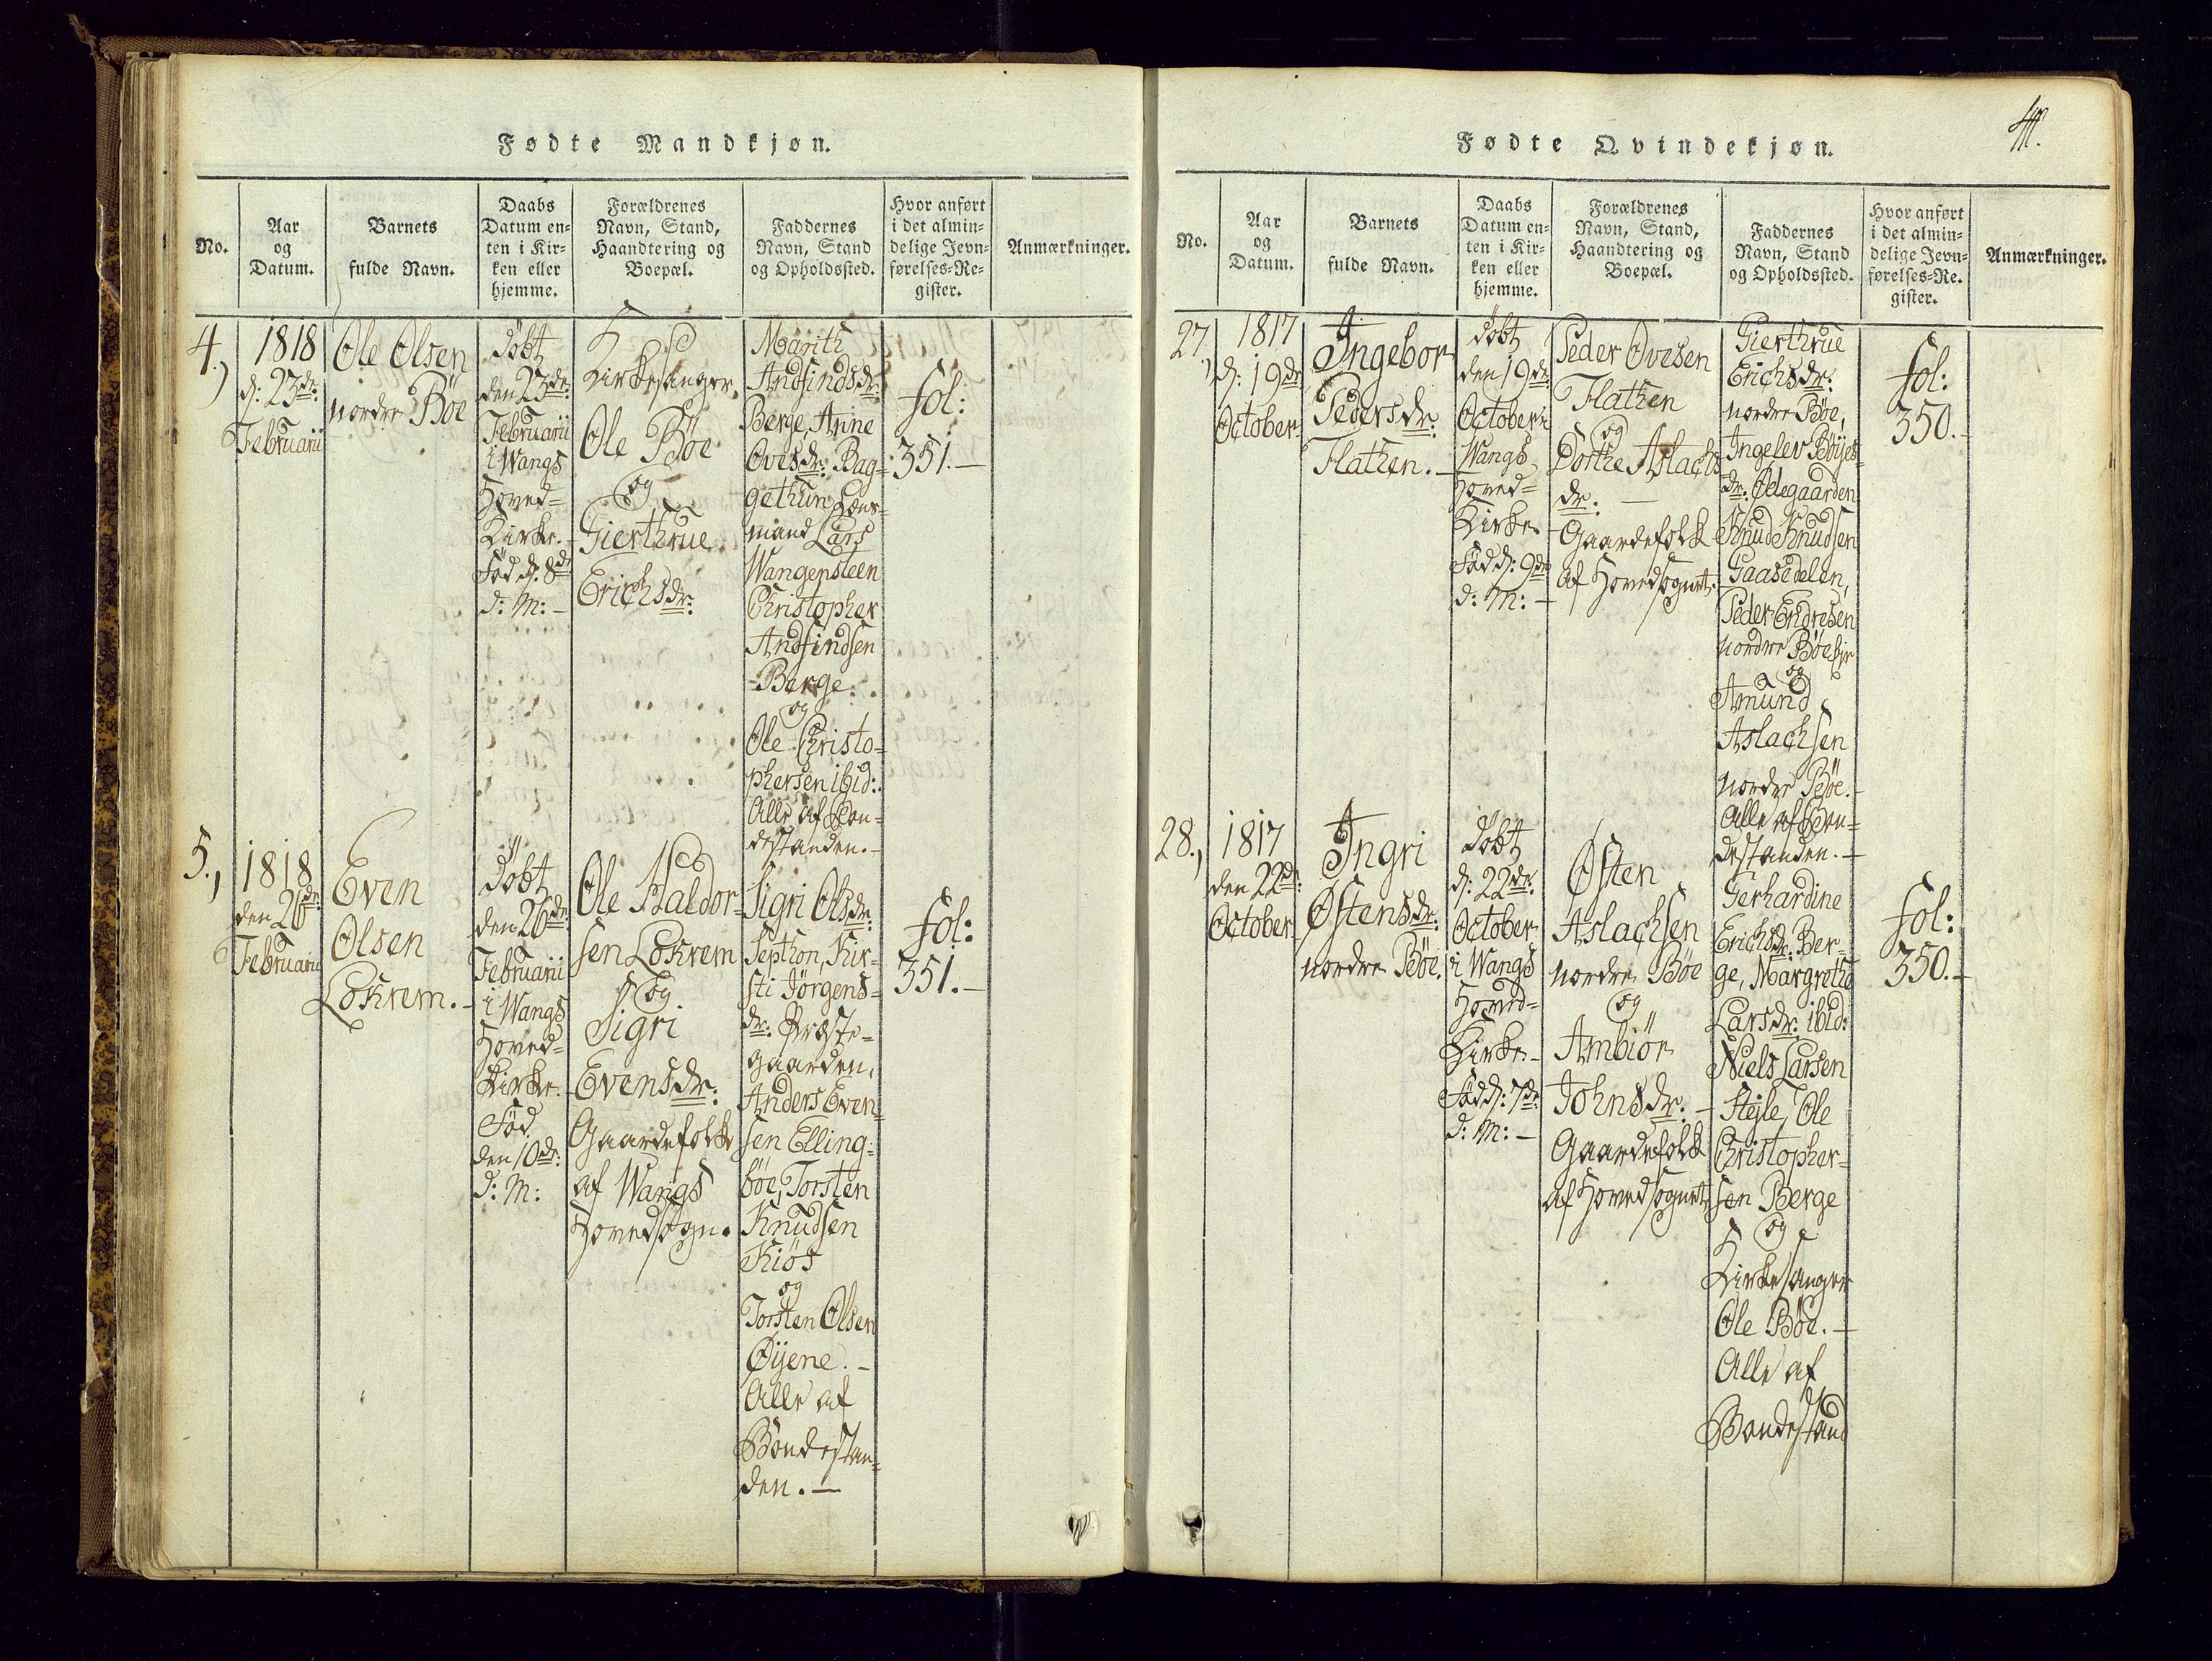 Fødte Mandkjøn.
No.
Aar
og
Datum.
Barnets
fulde Navn.
Daabs
Datum en-
ten i Kir-
ken eller
hjemme.
Forældrenes
Navn, Stand,
Haandtering og
Boepæl.
Faddernes
Navn, Stand
og Opholdssted.
Hvor anført
i det almin-
delige Jevn-
førelses-Re-
gister.
Anmærkninger.
4.)
1818
d: 23dr:
Februarii
Ole Olsen
nordre Bøe
døbt
den 23dr:
Februarii
i Wangs
Hoved=
Kirke.
Fød d: 8dr
d: M: -
Kirkesanger
Ole Bøe
og
Gierthrue
Erichsdr:
Marith
Andfindsdr:
Berge, Anne
Ovesdr: Bag=
gethun Lens-
mand Lars
Wangensteen
Christopher
Andfindsen
Berge.
og
Ole Christo=
phersen ibid:
Alle af Bon=
destanden. -
fol:
351. -
5.,
1818
den 26dr:
Februarii
Even
Olsen
Lokrem. -
døbt
den 26dr:
Februarii
i Wangs
Hoved=
Kirke.
Fød
den 10dr:
d: M:
Ole Haldor=
sen Lokrem
og
Sigri
Evensdr:
Gaardefolk
af Wangs
Hovedsogn.
Sigri Olsdr:
Sethon, Kir=
sti Jørgens=
dr: Præste=
gaarden,
Anders Even=
sen Elling=
bøe, Torsten
Knudsen
Kiøs
og
Torsten Olsen
Øyene. -
Alle af
Bondestan=
den. -
fol:
351. -
Fødte Qvindekjøn.
No.
Aar
og
Datum.
Barnets
fulde Navn.
Daabs
Datum en-
ten i Kir-
ken eller
hjemme.
Forældrenes
Navn, Stand,
Haandtering og
Boepæl.
Faddernes
Navn, Stand
og Opholdssted.
Hvor anført
i det almin-
delige Jevn-
førelses-Re-
gister.
Anmærkninger.
27.,
1817
d: 19dr
October
Ingebor
Pedersdr:
Flathen. -
døbt
den 19dr:
October i
Wangs
Hoved=
Kirke. -
Fød d: 9dr
d: M: -
Peder Ovesen
Flathen
og
Dorthe Aslachs
dr: -
Gaardefolk
af Hovedsognet.
Gierthrue
Erichsdr:
nordre Bøe,
Ingelev Bøyes=
dr: Ødegaarden
Knud Knudsen
Gaasedelen,
Peder Endresen
nordre Bøe
og
Amund
Aslachsen
nordre Bøe. -
Alle af Bon=
destanden. -
fol:
350. -
28.,
1817
den 22dr:
October
Ingri
Østensdr:
nordre Bøe.
døbt
d: 22dr:
October
i Wangs
Hoved=
Kirke. -
Fød d: 7dr:
d: M: -
Østen
Aslachsen
nordre Bøe
og
Ambiør
Johnsdr: -
Gaardefolk
af Hovedsognet
Gerhardine
Erichsdr: Ber=
ge, Margrethe
Larsdr: ibid:
Niels Larsen
Steile, Ole
Christopher=
sen Berge
og
Kirkesanger
Ole Bøe. -
Alle af
Bondestand
fol:
350. -